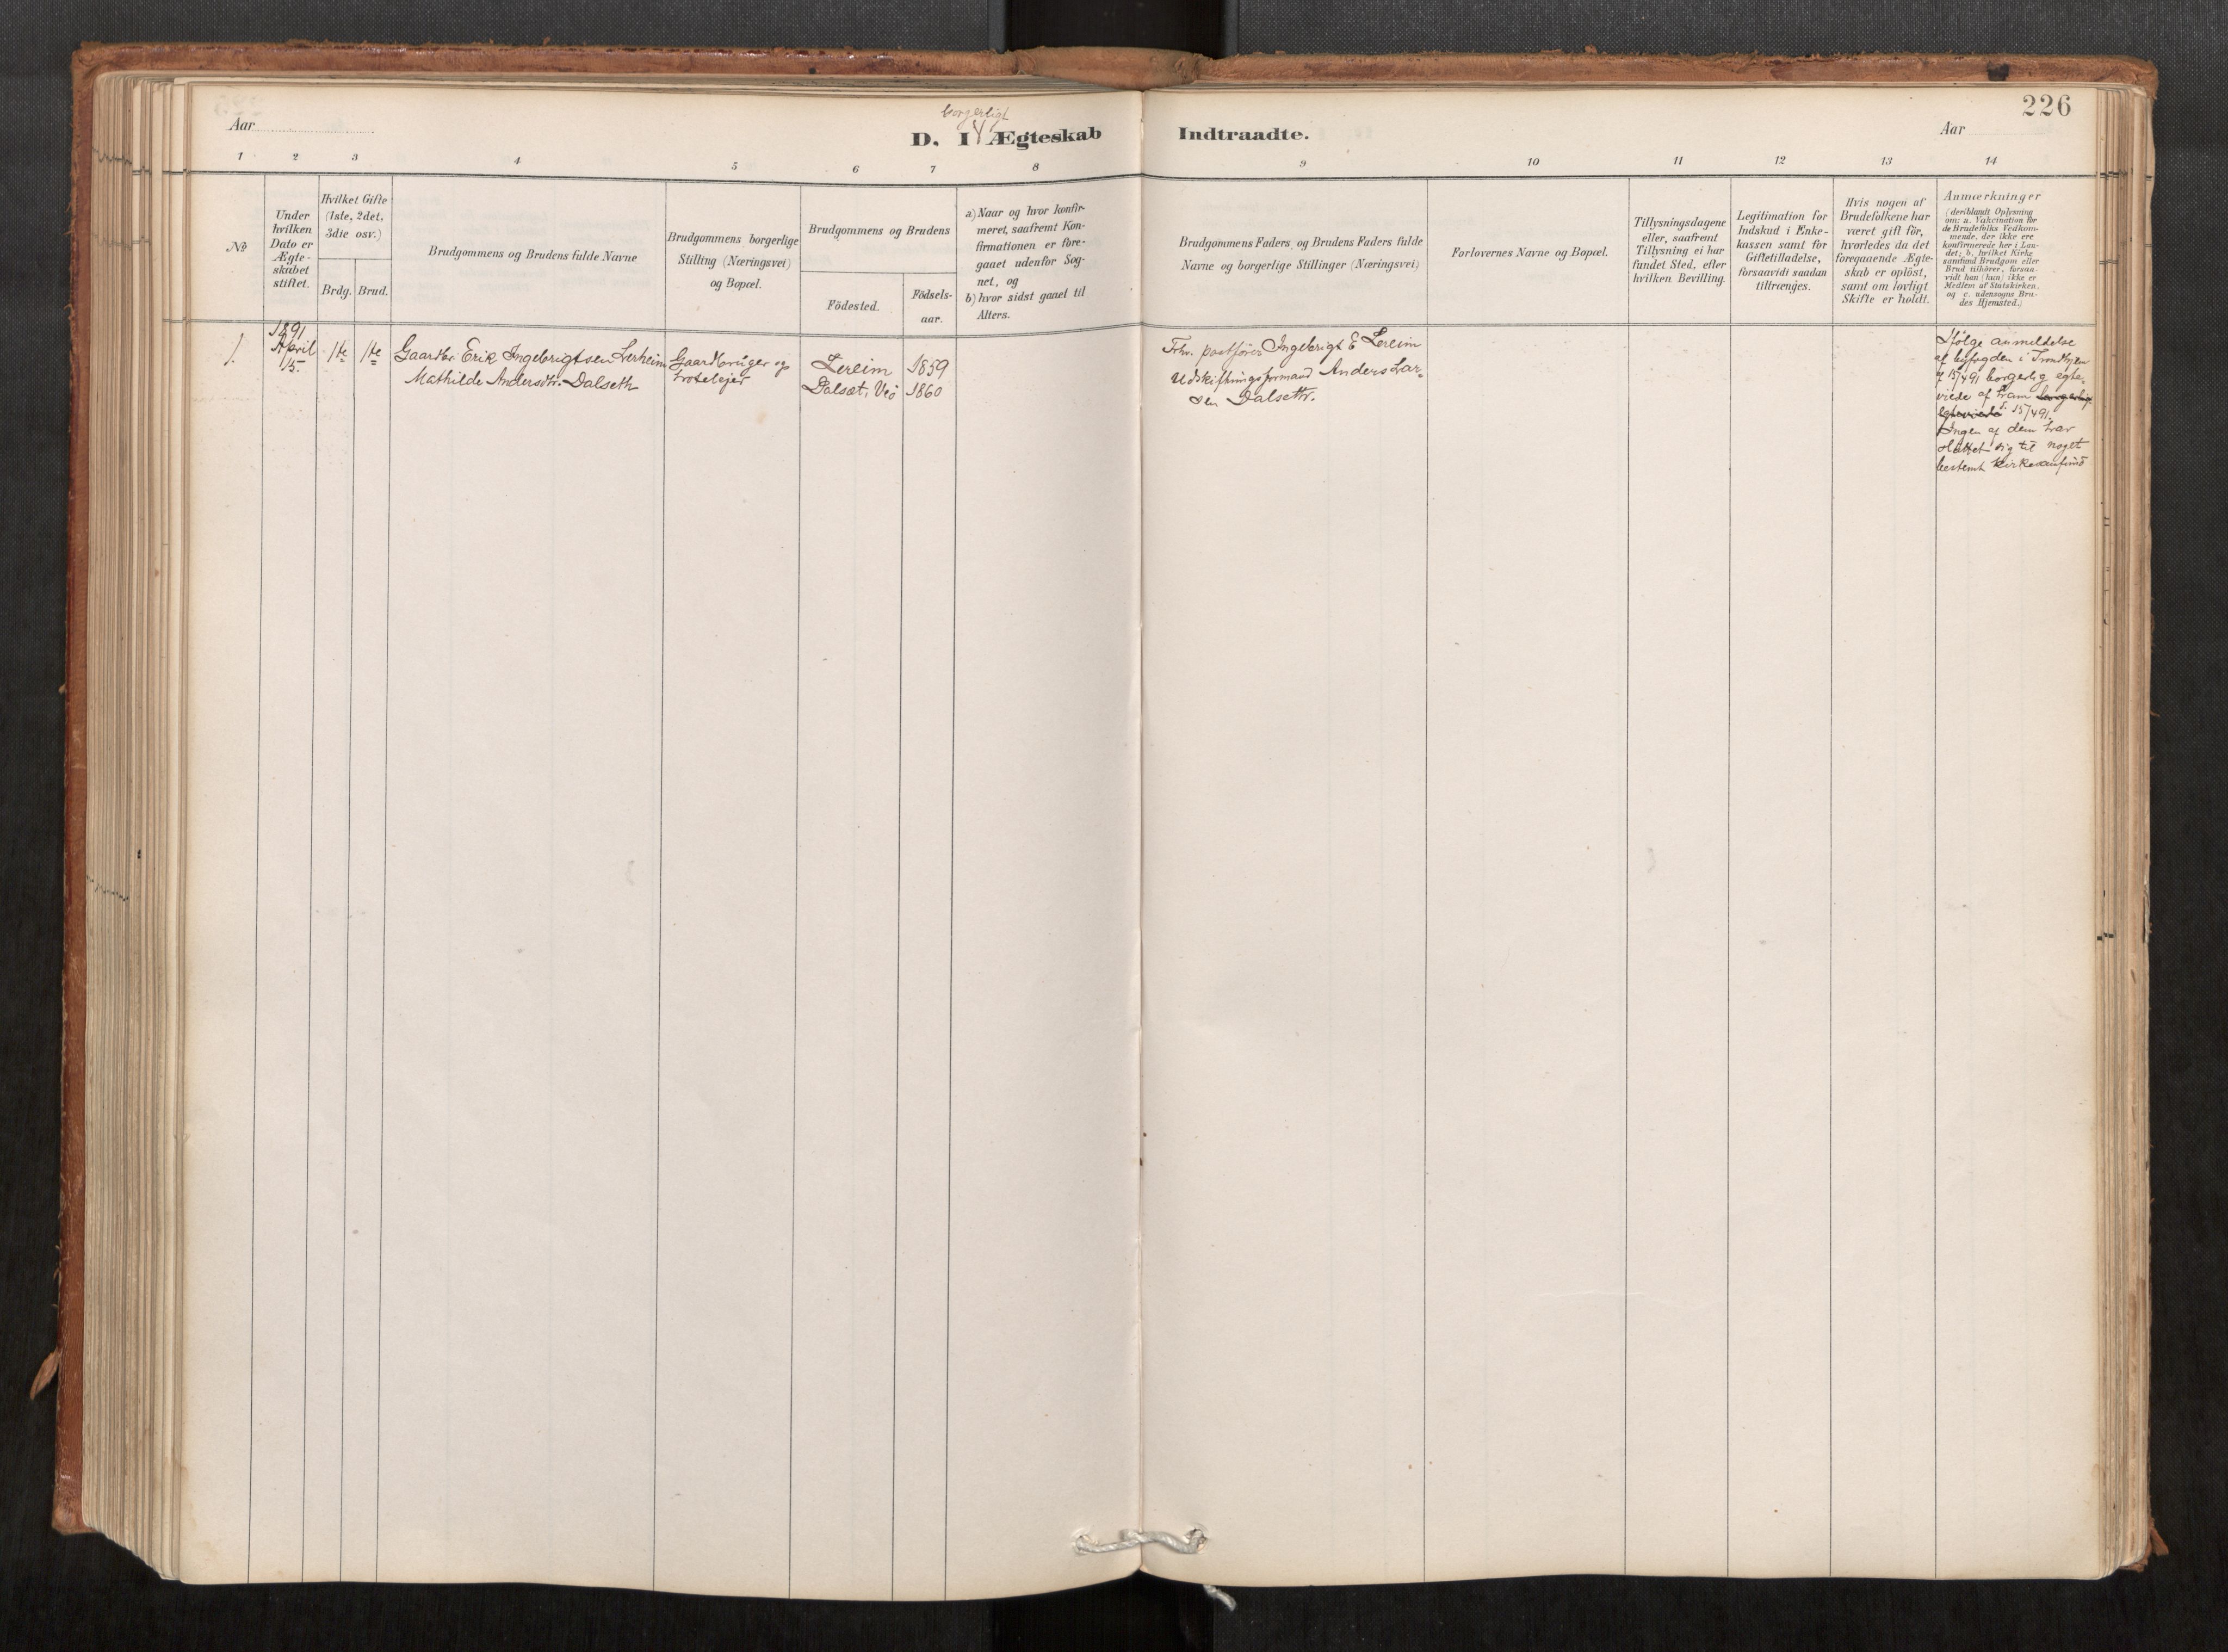 226
Aar
borgerligt
D. I Ægteskab
Indtraadte.
Aar
1 2 3 4 5 6 7 8 9 10 11 12 13 14
No
Under
hvilken
Dato er
Ægte-
skabet
stiftet.
Hvilket Gifte
(1ste, 2det,
3die osv.)
Brdg.
Brud.
Brudgommens og Brudens fulde Navne
Brudgommens borgerlige
Stilling (Næringsvei)
og Bopæl.
Brudgommens og Brudens
Födested.
Födsels-
aar.
a) Naar og hvor konfir-
meret, saafremt Kon-
firmationen er fore-
gaaet udenfor Sog-
net, og
b) hvor sidst gaaet til
Alters.
Brudgommens Faders og Brudens Faders fulde
Navne og borgerlige Stillinger (Næringsvei)
Forlovernes Navne og Bopæl.
Tillysningsdagene
eller, saafremt
Tillysning ei har
fundet Sted, efter
hvilken Bevilling.
Legitimation for
Indskud i Enke-
kassen samt for
Giftetilladelse,
forsaavidt saadan
tiltrænges.
Hvis nogen af
Brudefolkene har
været gift för,
hvorledes da det
foregaaende Ægte-
skab er oplöst,
samt om lovligt
Skifte er holdt.
Anmærkninger
(deriblandt Oplysning
om: a. Vakcination for
de Brudefolks Vedkom-
mende, der ikke ere
konfirmerede her i Lan-
det; b. hvilket Kirke
samfund Brudgom eller
Brud tilhörer, forsaa-
vidt han (hun) ikke er
Medlem af Statskirken,
og c. udensogns Bru-
des Hjemsted.)
1.
1891
April
15.
1ste
1ste
Gaardbr. Erik Ingebrigtsen Lerheim
Mathilde Andersdtr. Dalseth
Gaardbruger og
hotelejer
Lereim
Dalset, Veö
1859
1860
Frhv. postförer Ingebrigt E Lereim
Udskiftningsformand Anders Lar-
sen Dalseth.
Ifölge anmeldelse
af byfogden i Trondhjem
af 15/4 91 borgerlig egte-
viede af ham borgerlig
egteviede d. 15/4 91.
Ingen af dem har
sluttet sig til noget
bestemt kirkesamfund